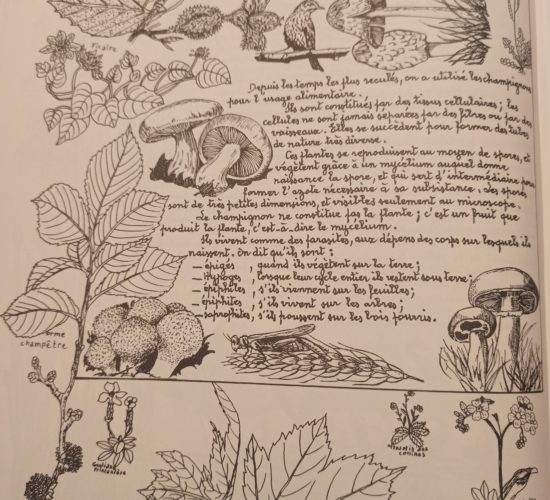 Ficaire
Depuis les temps les plus reculés, on a utilisé les champignons
pour l'usage alimentaire.
Ils sont constitués par des tissus cellulaires ; les
cellules ne sont jamais séparées par des fibres ou par des
vaisseaux. Elles se succèdent pour former des tubes
de nature très diverse.
Ces plantes se reproduisent au moyen de spores, et
végètent grâce à un mycetium auquel donne
naissance la spore, et qui sert d'intermédiaire pour
former l'azote nécessaire à sa subsistance. Les spores
sont de très petites dimensions, et visibles seulement au microscope.
Le champignon ne constitue pas la plante ; c'est un fruit que
produit la plante, c'est-à-dire le mycetium.
Ils vivent comme des parasites, aux dépens des corps sur lesquels ils
naissent. On dit qu'ils sont :
_ épigés , quand ils végètent sur la terre ;
_ lorsque leur cycle entier ils restent sous terre ;
_ épiphites , s'ils viennent sur les feuilles ;
_ épiphites , s'ils vivent sur les arbres ;
_ saprophites , s'ils poussent sur les bois pourris.
orme
champêtre
collines